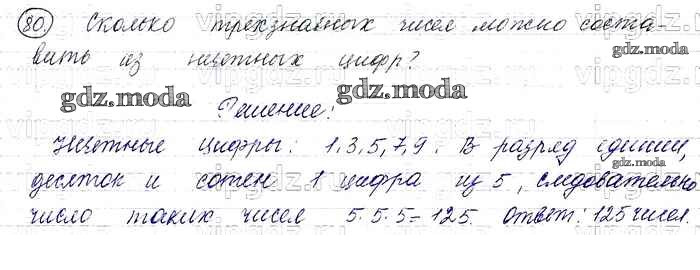 80. Сколько трехзначных чисел можно соста-
вить из нечетных цифр?
gdz.moda
gdz.moda
gdz.moda
Решение:
Нечетные цифры: 1,3,5,7,9. В разряд единиц,
gdz.moda
десяток и сотен 1 цифра из 5, следовательно
число таких чисел 5·5·5=125. Ответ: 125 чисел.